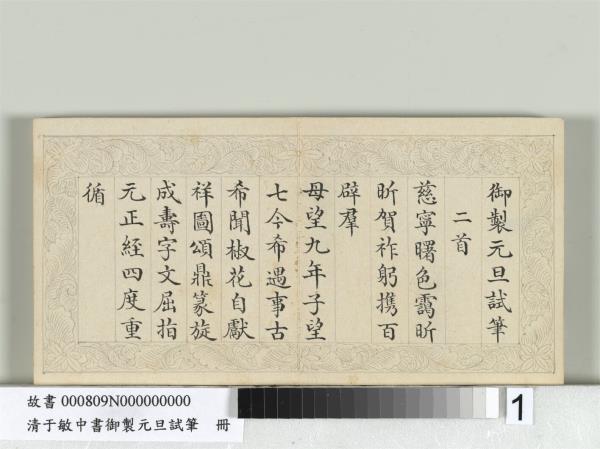 御製元旦試筆
二首
慈寧曙色靄昕
昕賀祚躬攜百
辟羣
母望九年子望
七今希遇事古
希聞椒花自獻
祥圖頌鼎篆旋
成壽字文屈指
元正經四度重
循
故書 000809N000000000
清于敏中書御製元旦試筆 冊
1